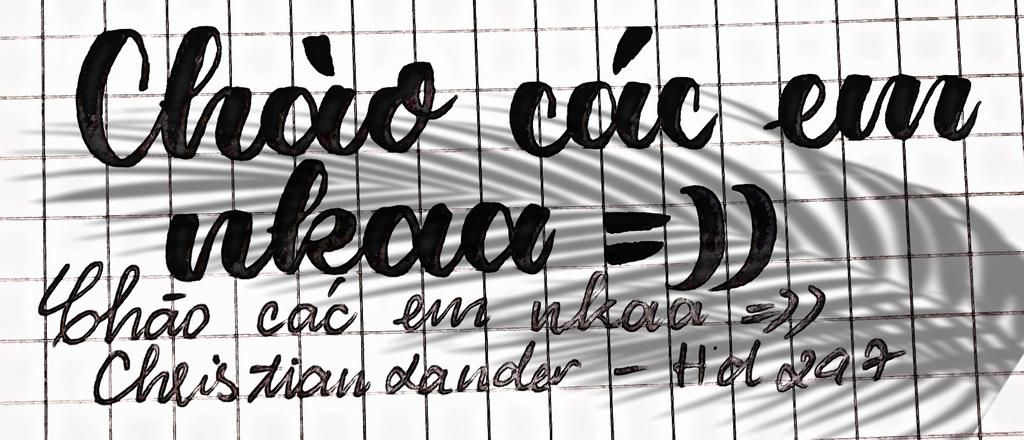 Chào các em
nkaa =))
Chāo các em nkaa =))
Christian Lander - Hd 297